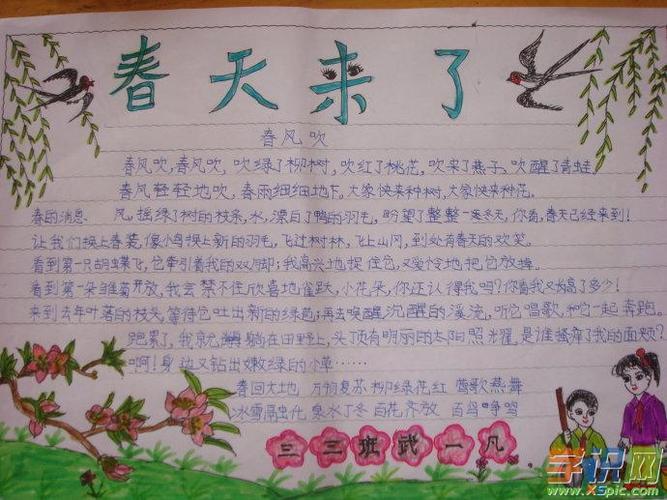 春天来了
春风吹
春风吹,春风吹,吹绿了柳树,吹红了桃花,吹来了燕子,吹醒了青蛙。
春风轻轻地吹,春雨细细地下。大家快来种树,大家快来种花。
春的消息 风,摇绿了树的枝条,水,漂白了鸭的羽毛,盼望了整整一寒冬天,你看,春天已经来到!
让我们换上春装,像小鸟换上新的羽毛,飞过树林,飞上山冈,到处有春天的欢笑。
看到第一只胡蝶飞,它牵引着我的双脚;我高兴地捉住它,又爱怜地把它放掉。
看到第一朵雏菊开放,我会禁不住欣喜地雀跃,小花朵,你还认得我吗?你看我又长高了多少!
来到去年叶落的枝头,等待它吐出新的绿苞;再去唤醒沉醒的溪流,听它唱歌,和它一起奔跑。
跑累了,我就躺在田野上,头顶有明丽的太阳照耀,是谁搔痒了我的面颊?
啊!身边又钻出嫩绿的小草……
春回大地 万物复苏 柳绿花红 莺歌燕舞
冰雪融化 泉水丁冬 百花齐放 百鸟争鸣
三三班武一凡
学识网
www.xspic.com